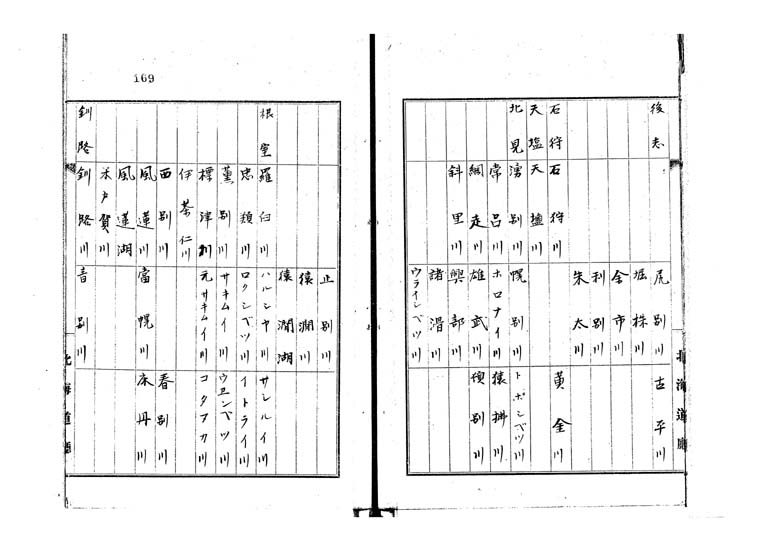 後志 尻別川 古平川
堀株川
余市川
利別川
朱太川
石狩 石狩川 黄金川
天塩 天塩川
北見 湧別川 幌別川 トホシベツ川
常呂川 ホロナイ川 猿拂川
網走川 雄武川 頓別川
斜里川 興部川
諸滑川
ウライシベツ川
北海道廳
169
止別川
猿澗川
猿澗湖
根室 羅臼川 ハルシヤ川 サシルイ川
忠類川 ロクシベツ川 イトライ川
薫別川 サキムイ川 ウヱンベツ川
標津川 元サキムイ川 コタヌカ川
伊茶仁川
西別川 春別川
風蓮川 當幌川 床丹川
風蓮湖
木戸賀川
釧路 釧路川 音別川
北海道廳